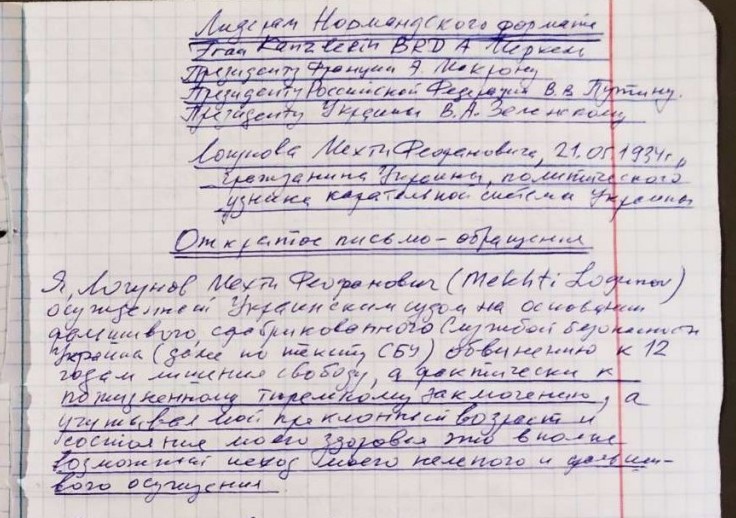 Лидерам Нормандского формата
Frau Kanzlerin BRD А. Меркель
Президенту Франции Э. Макрону
Президенту Российской Федерации В.В. Путину.
Президенту Украины В.А. Зеленскому
Логунова Мехти Феофановича, 21.05.1934г.,
гражданина Украины, политического
узника карательной системы Украины
Открытое письмо-обращение
Я, Логунов Мехти Феофанович (Mekhti Logunov)
осужденный Украинским судом на основании
фальшивого, сфабрикованного Службой безопасности
Украины (далее по тексту СБУ) обвинению к 12
годам лишения свободы, а фактически к
пожизненному тюремному заключению, а
учитывая мой преклонный возраст и
состояния моего здоровья это вполне
возможный исход моего нелепого и фальши-
вого осуждения.